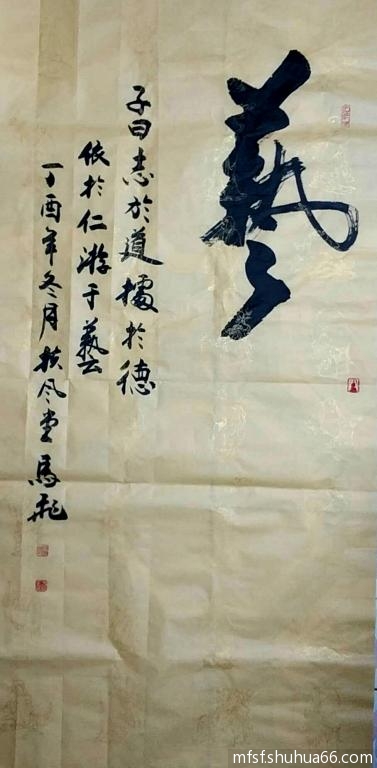 藝
子曰志於道據於德
依於仁游于藝
丁酉年冬月扶风堂馬飛
mfsfshuhua66.com